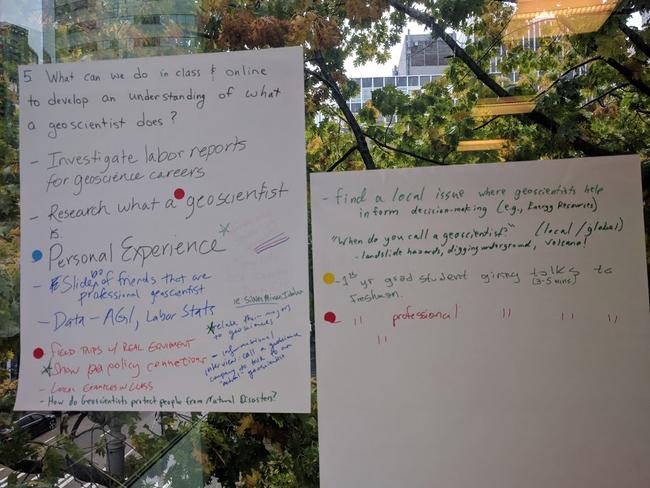 5 What can we do in class & online
to develop an understanding of what
a geoscientist does?
- Investigate labor reports
for geoscience careers
- Research what a geoscientist
is.
Personal Experience
- Slide of friends that are
professional geoscientist
- Data - AGI, Labor Stats
- FIELD TRIPS w/ REAL EQUIPMENT
Show policy connections
- LOCAL EXAMPLES IN CLASS
- How do Geoscientists protect people from Natural Disasters?
relate their majors
to geosciences
- informational
interview: call a geoscience
company to talk to an
geoscientist
- find a local issue where geoscientists help
inform decision-making (e.g., Energy Resources)
"When do you call a geoscientist?" (local/global)
- landslide hazards, digging underground, volcano!
- 1st yr grad student giving talks to
(3-5 mins)
freshmen.
- " professional " " "
"